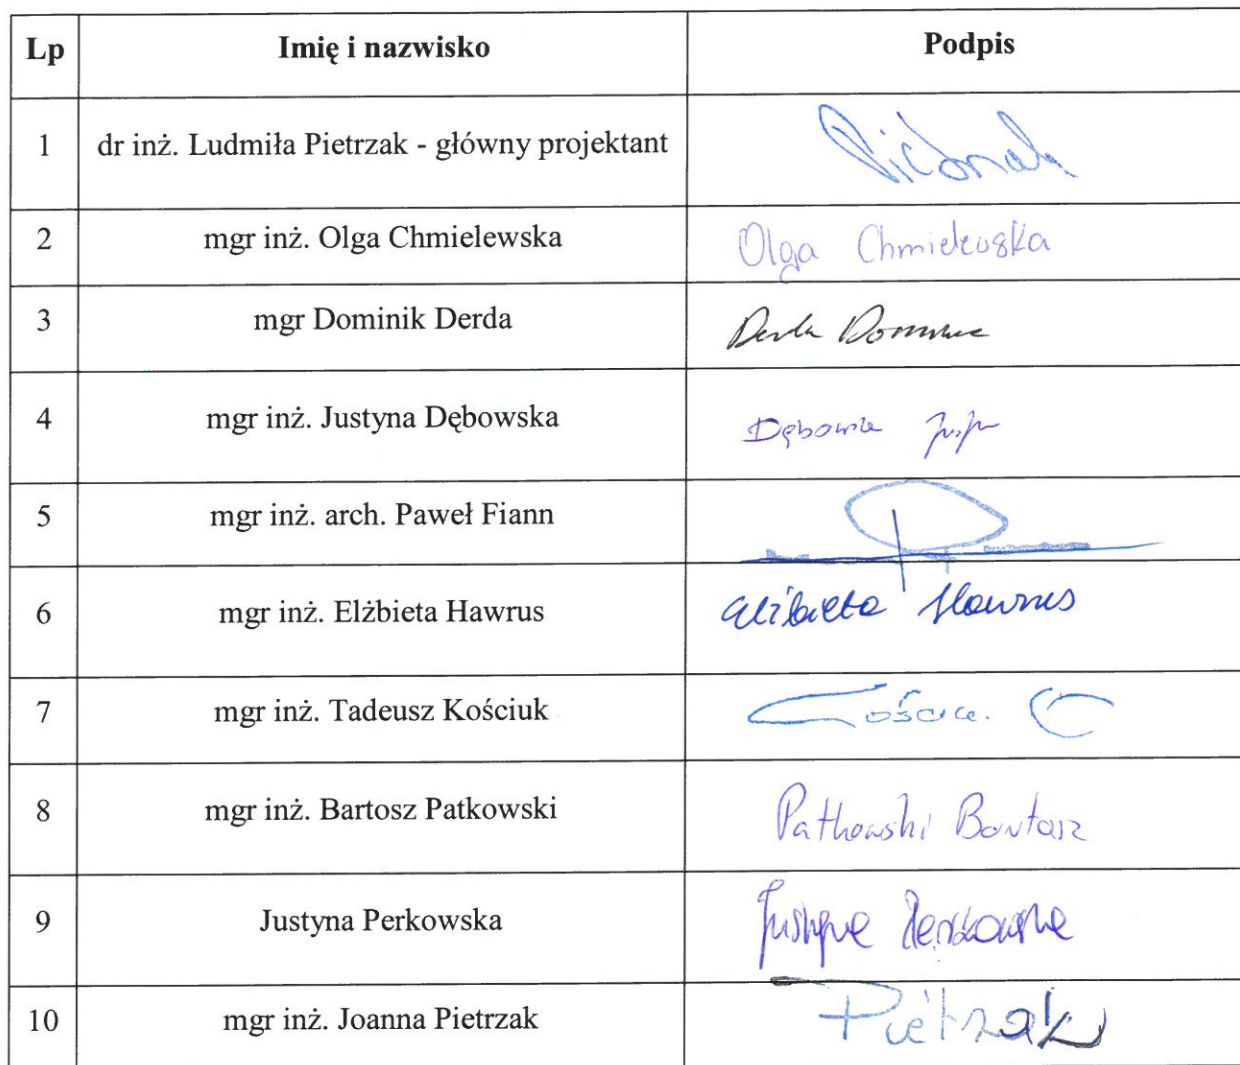 Lp Imię i nazwisko Podpis
1 dr inż. Ludmiła Pietrzak - główny projektant
2 mgr inż. Olga Chmielewska Olga Chmielewska
3 mgr Dominik Derda Derda
4 mgr inż. Justyna Dębowska
5 mgr inż. arch. Paweł Fiann
6 mgr inż. Elżbieta Hawrus Elżbieta Hawrus
7 mgr inż. Tadeusz Kościuk
8 mgr inż. Bartosz Patkowski Patkowski Bartosz
9 Justyna Perkowska Justyna Perkowska
10 mgr inż. Joanna Pietrzak Pietrzak